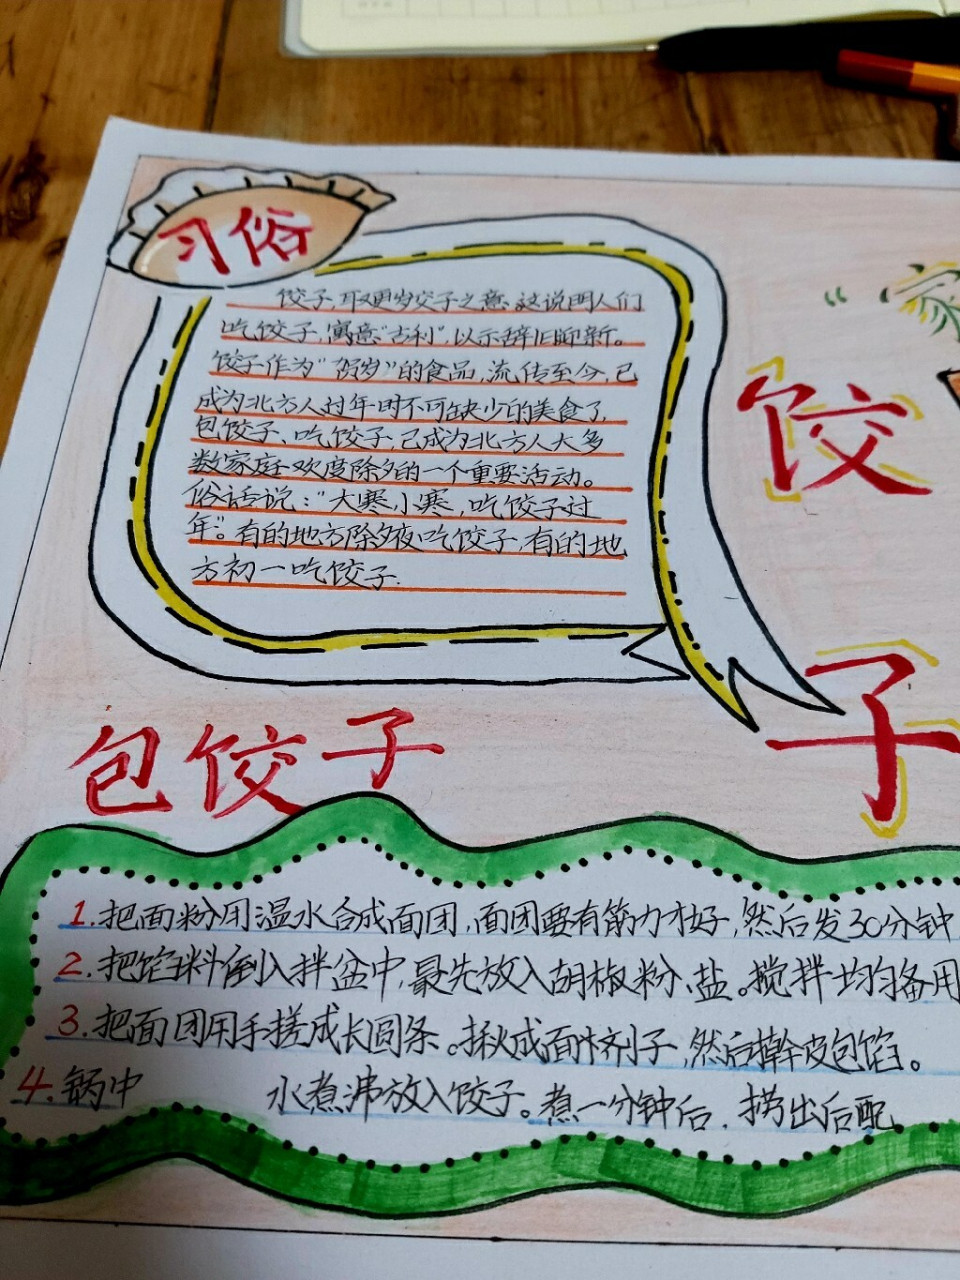 习俗
饺子,取更岁交子之意.这说明人们
吃饺子,寓意"吉利",以示辞旧迎新。
饺子作为"贺岁"的食品,流传至今,已
成为北方人过年时不可缺少的美食了,
包饺子、吃饺子,已成为北方人大多
数家庭欢度除夕的一个重要活动。
俗话说:"大寒小寒,吃饺子过
年"。有的地方除夕夜吃饺子,有的地
方初一吃饺子.
"家
饺
子
包饺子
1.把面粉用温水合成面团,面团要有筋力才好,然后发30分钟
2.把馅料倒入拌盆中,最先放入胡椒粉、盐。搅拌均匀备用
3.把面团用手搓成长圆条。揪成面剂子,然后擀皮包馅。
4.锅中 水煮沸放入饺子。煮一分钟后.捞出后配